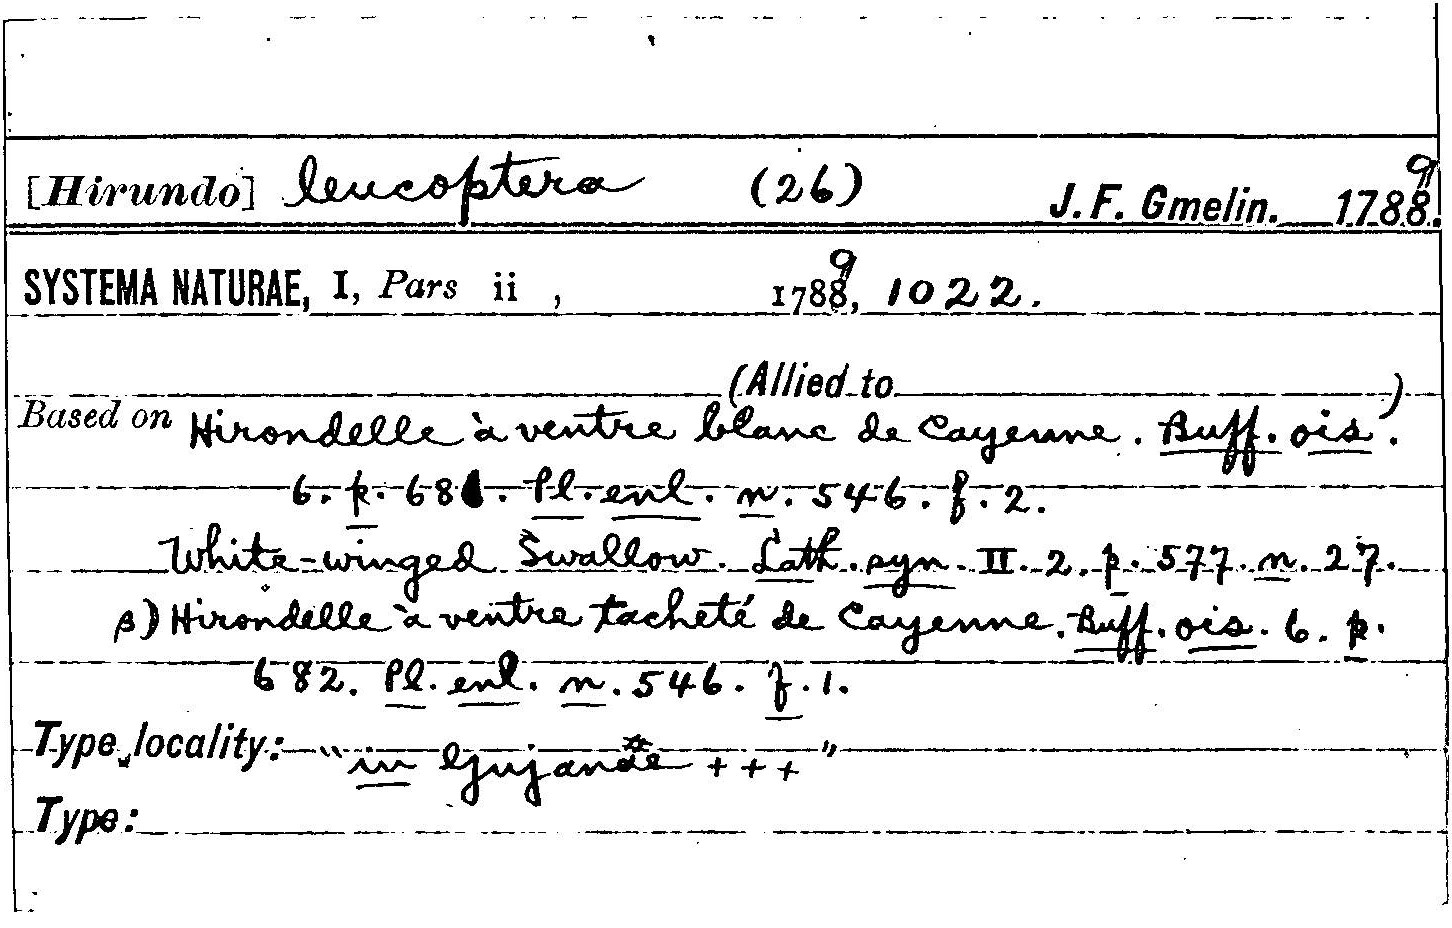 [Hirundo] leucoptera (26) J. F. Gmelin. 1788. 9
SYSTEMA NATURAE, I, Pars ii , 1788, 9 1022.
(Allied to )
Based on Hirondelle à ventre blanc de Cayenne. Buff. ois.
6. p. 681. Pl. enl. n. 546. f. 2.
White-winged Swallow. Lath. syn. II. 2. p. 577. n. 27.
β) Hirondelle à ventre tacheté de Cayenne. Buff. ois. 6. p.
682. Pl. enl. n. 546. f. 1.
Type locality: "in +++"
Type: